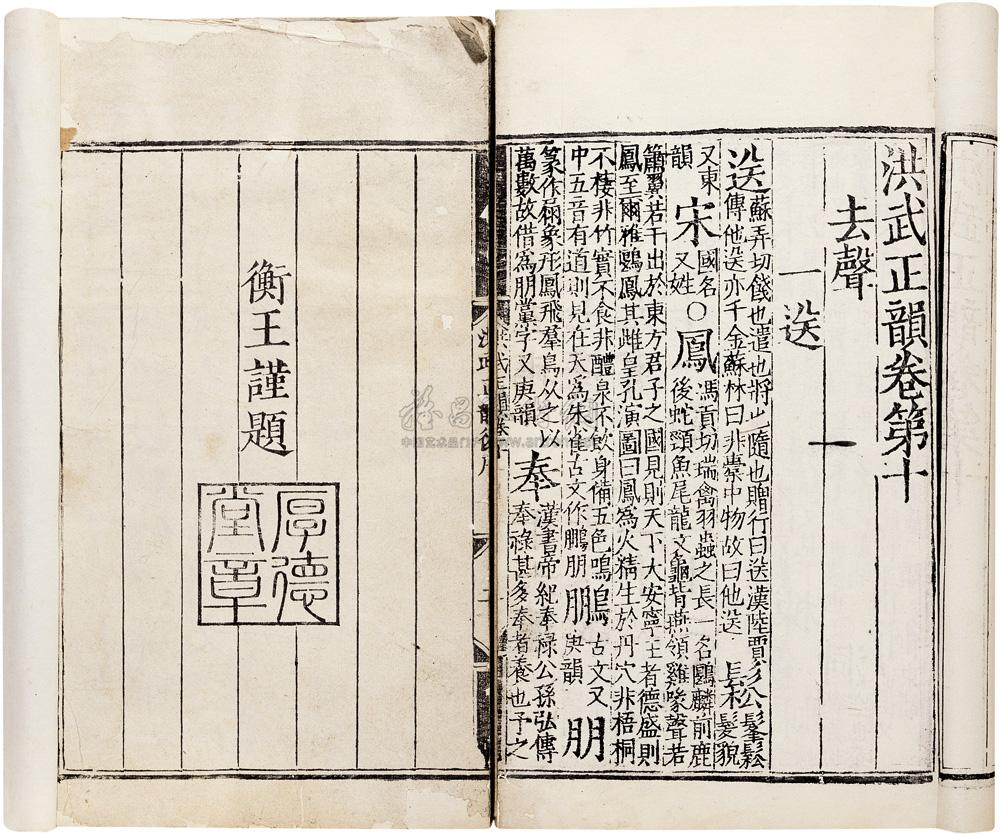 洪武正韻卷第十
去聲
一送
送 蘇弄切餞也遣也將也隨也贈行曰送漢陸賈
傳他送亦千金蘇林曰非橐中物故曰他送
鬆 髼鬆
髮貌
又東
韻
宋 國名
又姓
○鳳 馮貢切瑞禽羽蟲之長一名鶠麟前鹿
後蛇頸魚尾龍文龜背燕頷雞喙聲若
簫翼若干出於東方君子之國見則天下大安寧王者德盛則
鳳至爾雅鶠鳳其雌皇孔演圖曰鳳爲火精生於丹穴非梧桐
不棲非竹實不食非醴泉不飲身備五色鳴
中五音有道則見在天爲朱雀古文作鵬朋
鵬 古文又
庚韻
朋
篆作象形鳳飛羣鳥從之以
萬數故借爲朋黨字又庚韻
奉 漢書帝紀奉祿公孫弘傳
奉祿甚多奉者養也予之
衡王謹題
厚德
堂章